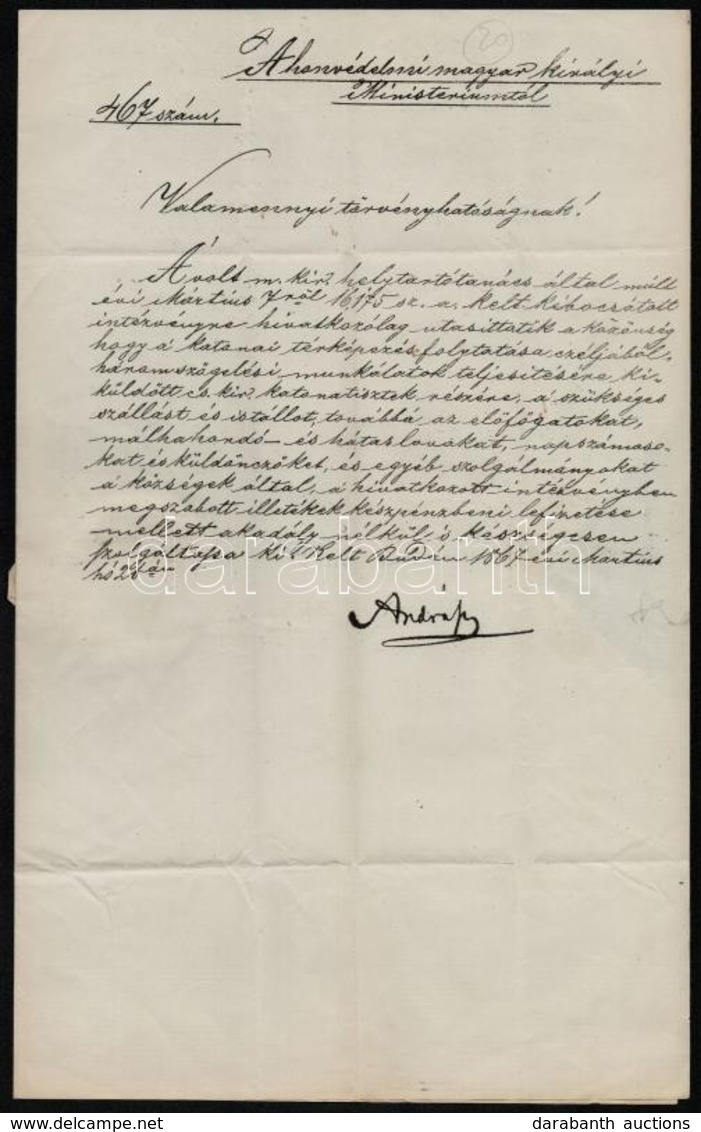 20
A honvédelmi magyar királyi
Ministeriumtól
467 szám.
Valamennyi törvényhatóságnak!
A volt m. kir. helytartótanács által mult
évi Mártius 7ról 16,175 sz. a. kelt kibocsátott
intézvényre hivatkozólag utasittatik a közönség
hogy a katonai térképezés folytatása czéljából,
háromszögelési munkálatok teljesitésére ki-
küldött cs. kir. katonatisztek részére, a szükséges
szállást és istállot, továbbá az előfogatokat,
málhahordó- és hátaslovakat, napszámoso-
kat és küldönczöket, és egyéb szolgálmányokat
a községek által, a hivatkozott intézvényben
megszabott illetékek készpénzbeni lefizetése
mellett akadály nélkül s készségesen
szolgáltassa ki. Kelt Budán 1867 évi Martius
hó 28án
Andrássy
darabanth
darabanth auctions